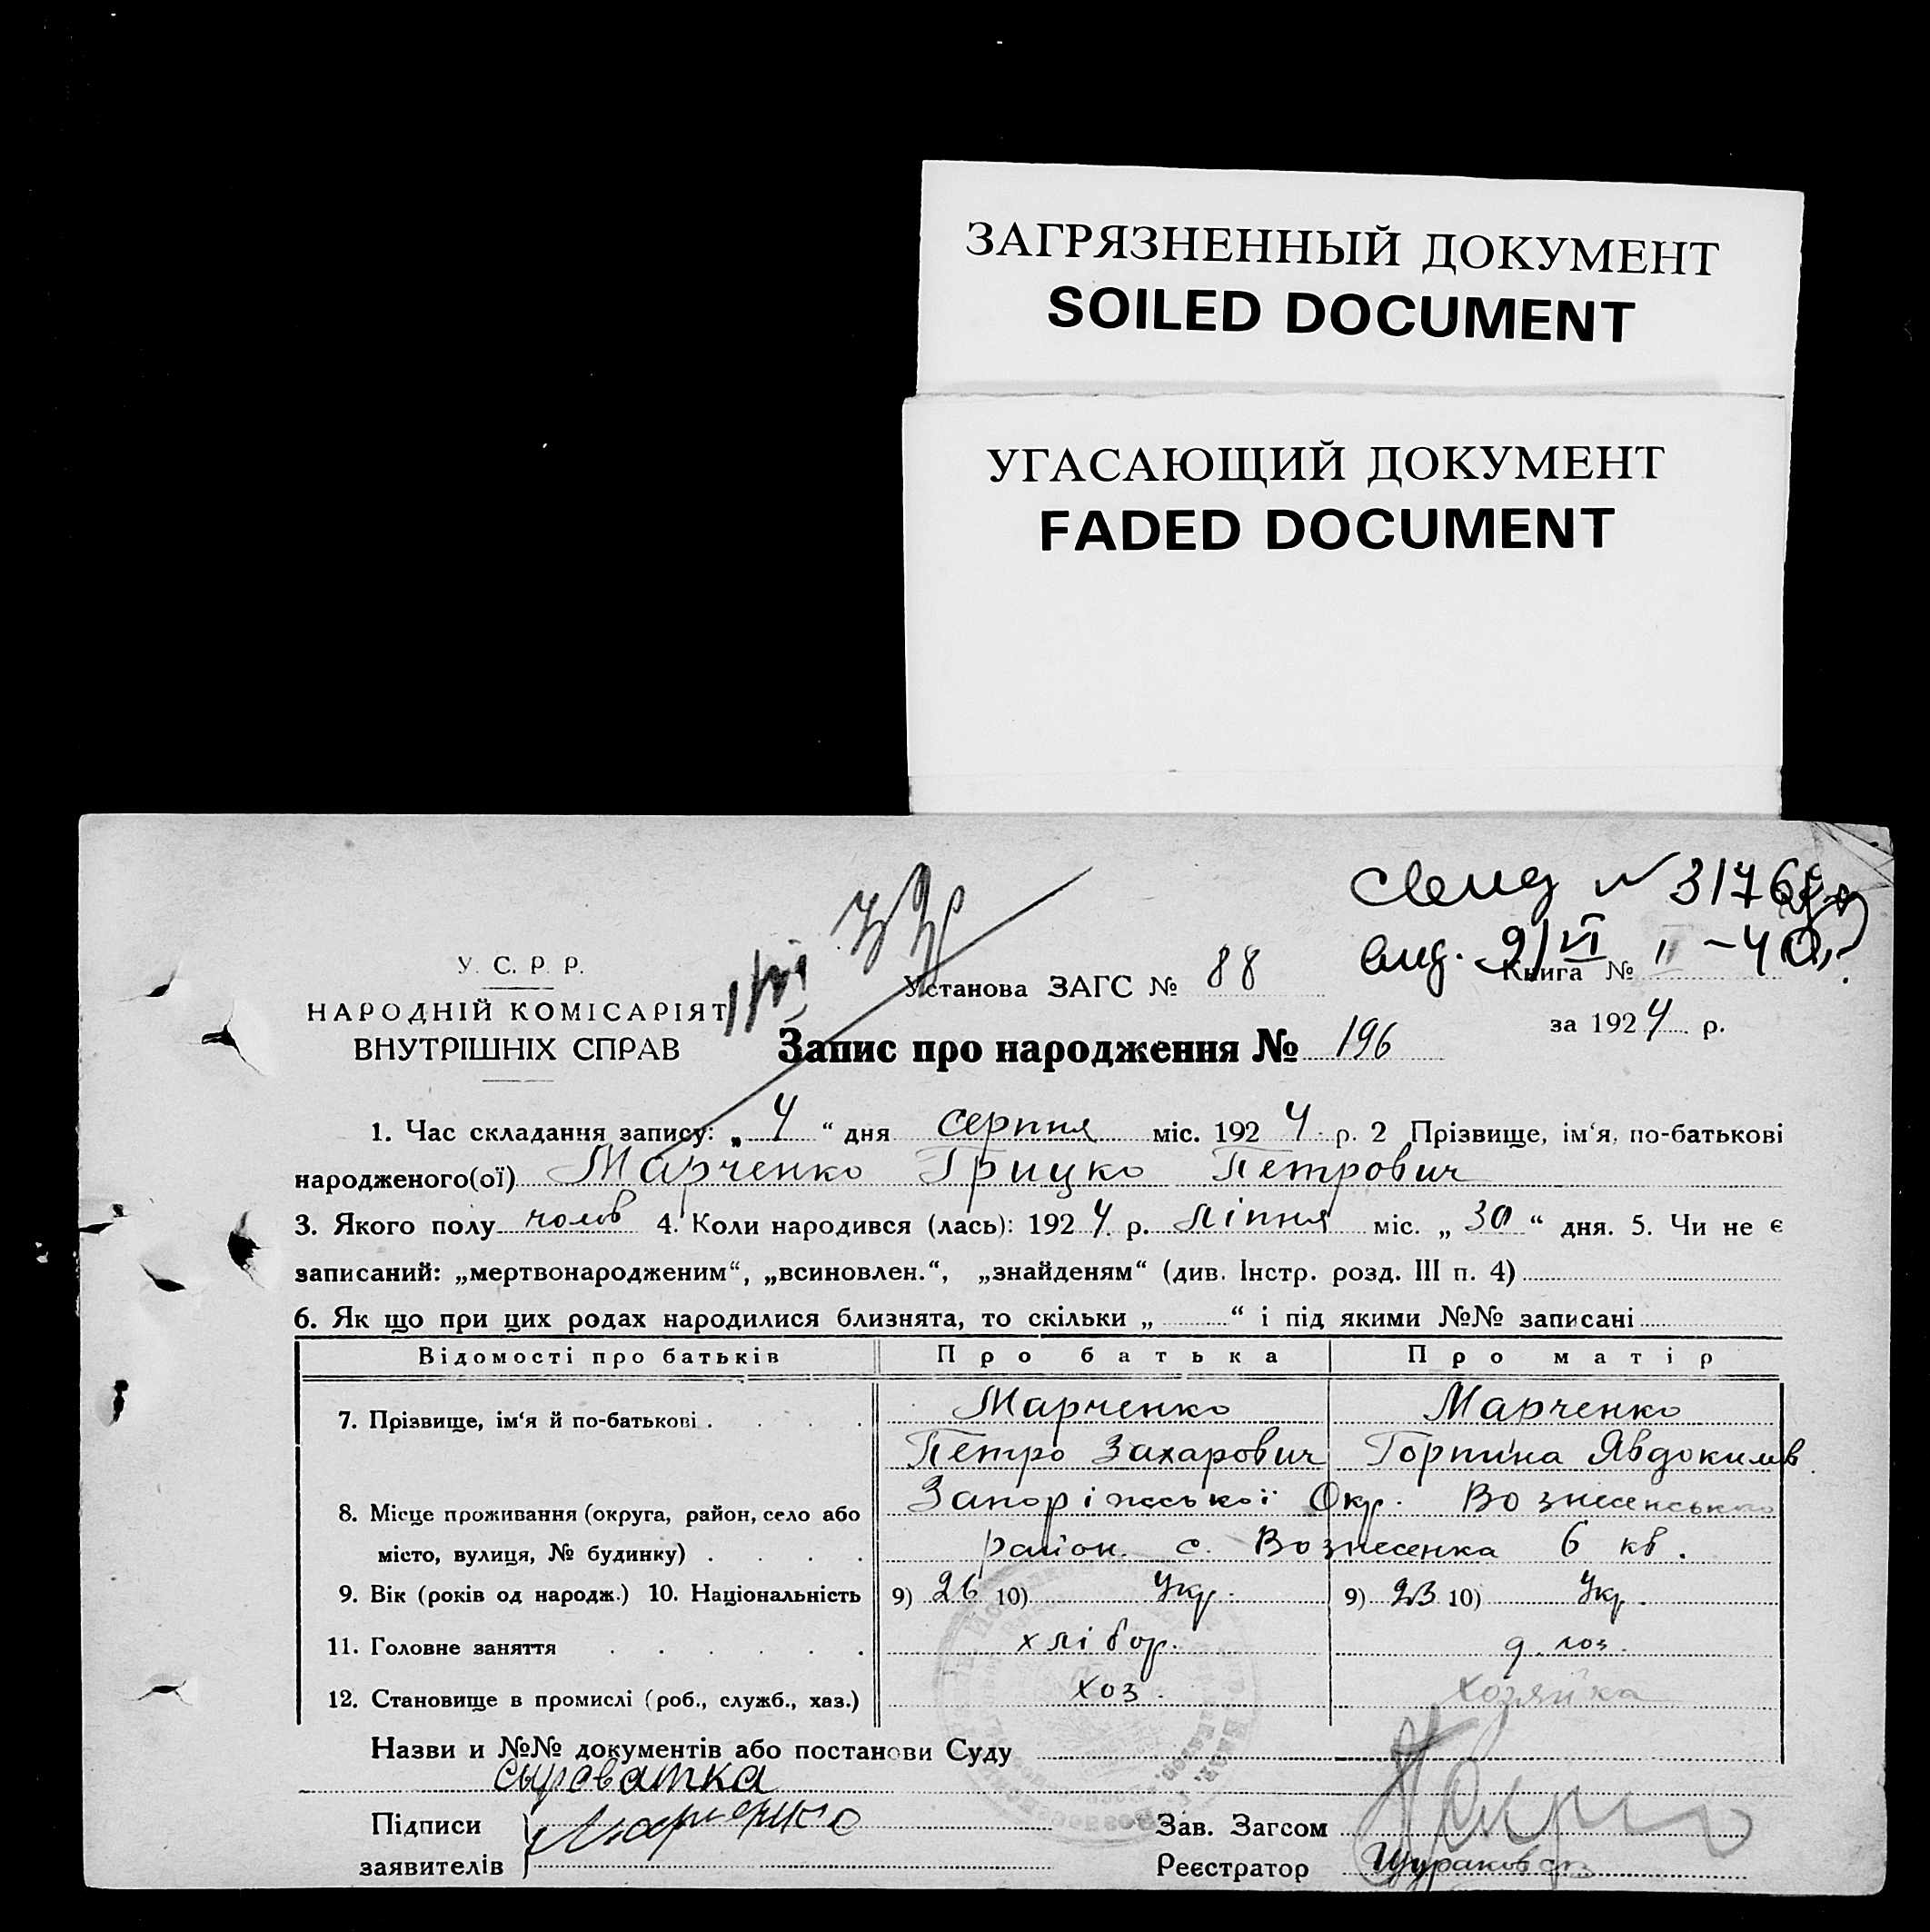 ЗАГРЯЗНЕННЫЙ ДОКУМЕНТ
SOILED DOCUMENT
УГАСАЮЩИЙ ДОКУМЕНТ
FADED DOCUMENT
У. С. Р. Р.
НАРОДНІЙ КОМІСАРІЯТ
ВНУТРІШНІХ СПРАВ
Установа ЗАГС № 88
Книга № II
за 1924 р.
Запис про народження № 196
1. Час складання запису: „ 4 “ дня серпня міс. 1924 р. 2 Прізвище, ім‘я, по-батькові
народженого(ої) Марченко Грицко Петрович
3. Якого полу чолов 4. Коли народився (лась): 1924 р. Ліпня міс. „ 30 “ дня. 5. Чи не є
записаний: „мертвонародженим“, „всиновлен.“, „знайденям“ (див. Інстр. розд. III п. 4)
6. Як що при цих родах народилися близнята, то скільки „ “ і під якими №№ записані
Відомості про батьків Про батька Про матір
7. Прізвище, ім‘я й по-батькові . . . . Марченко Марченко
Петро Захарович Горпина Явдокимів
8. Місце проживання (округа, район, село або Запоріжської Окр. Вознесенського
місто, вулиця, № будинку) . . . . район. с. Вознесенка 6 кв.
9. Вік (років од народж.) 10. Національність 9) 26 10) Укр. 9) 23 10) Укр.
11. Головне заняття . . . . . . хлібор. д. хоз.
12. Становище в промислі (роб., служб., хаз.) хоз. хозяйка
Назви и №№ документів або постанови Суду
сыроватка
Підписи Марченко
заявителів
Зав. Загсом
Реєстратор